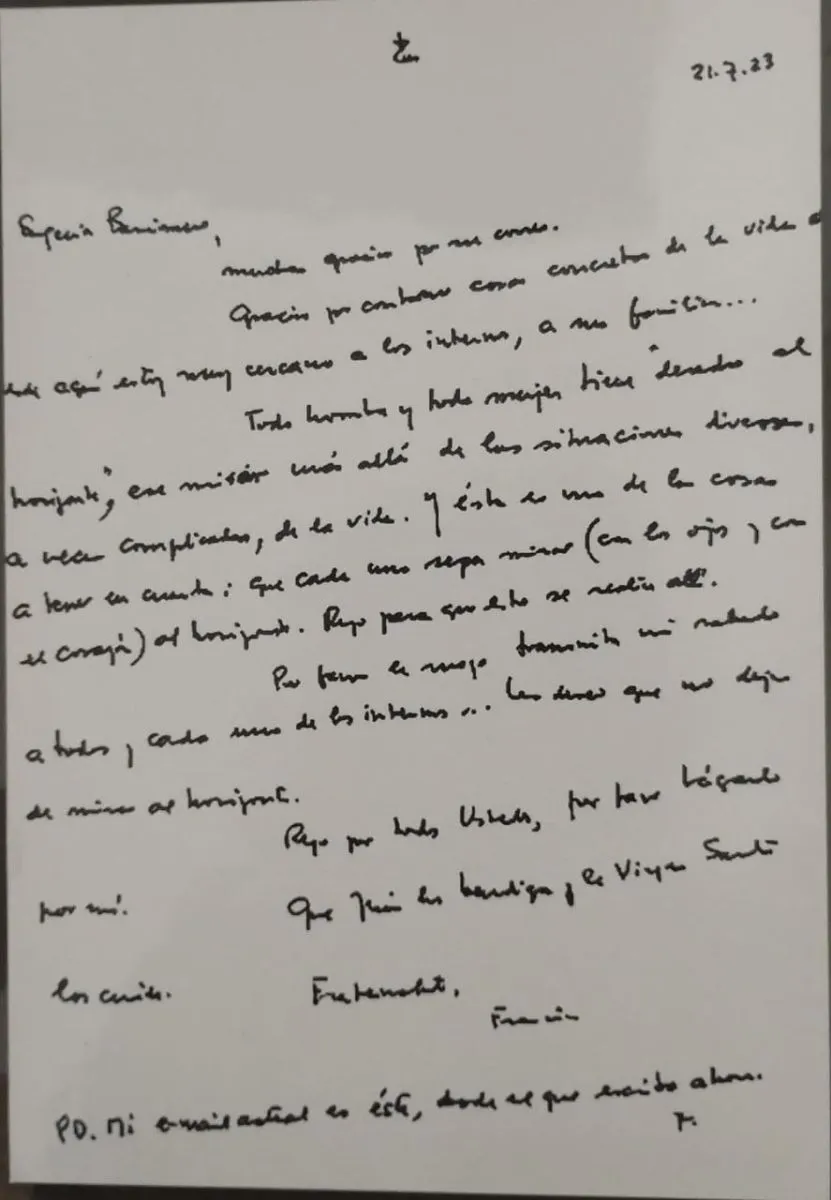 21.7.23
muchas gracias por su correo.
Gracias por contarme cosas concretas de la vida
aquí estoy muy cercano a los internos, a sus familias...
Todo hombre y toda mujer tiene "derecho al
horizonte", ese mirar más allá de las situaciones diversas,
a veces complicadas, de la vida. Y ésta es una de las cosas
a tener en cuenta: que cada uno sepa mirar (con los ojos y con
el corazón) al horizonte. Rezo para que esto se realice allí.
Por favor le ruego transmita mi saludo
a todos y cada uno de los internos... Les deseo que no dejen
de mirar al horizonte.
Rezo por todos Ustedes, por favor háganlo
por mí.
Que Jesús los bendiga y la Virgen Santa
los cuide.
Fraternalmente,
Francisco
PD. Mi e-mail actual es éste, desde el que escribo ahora.
F.